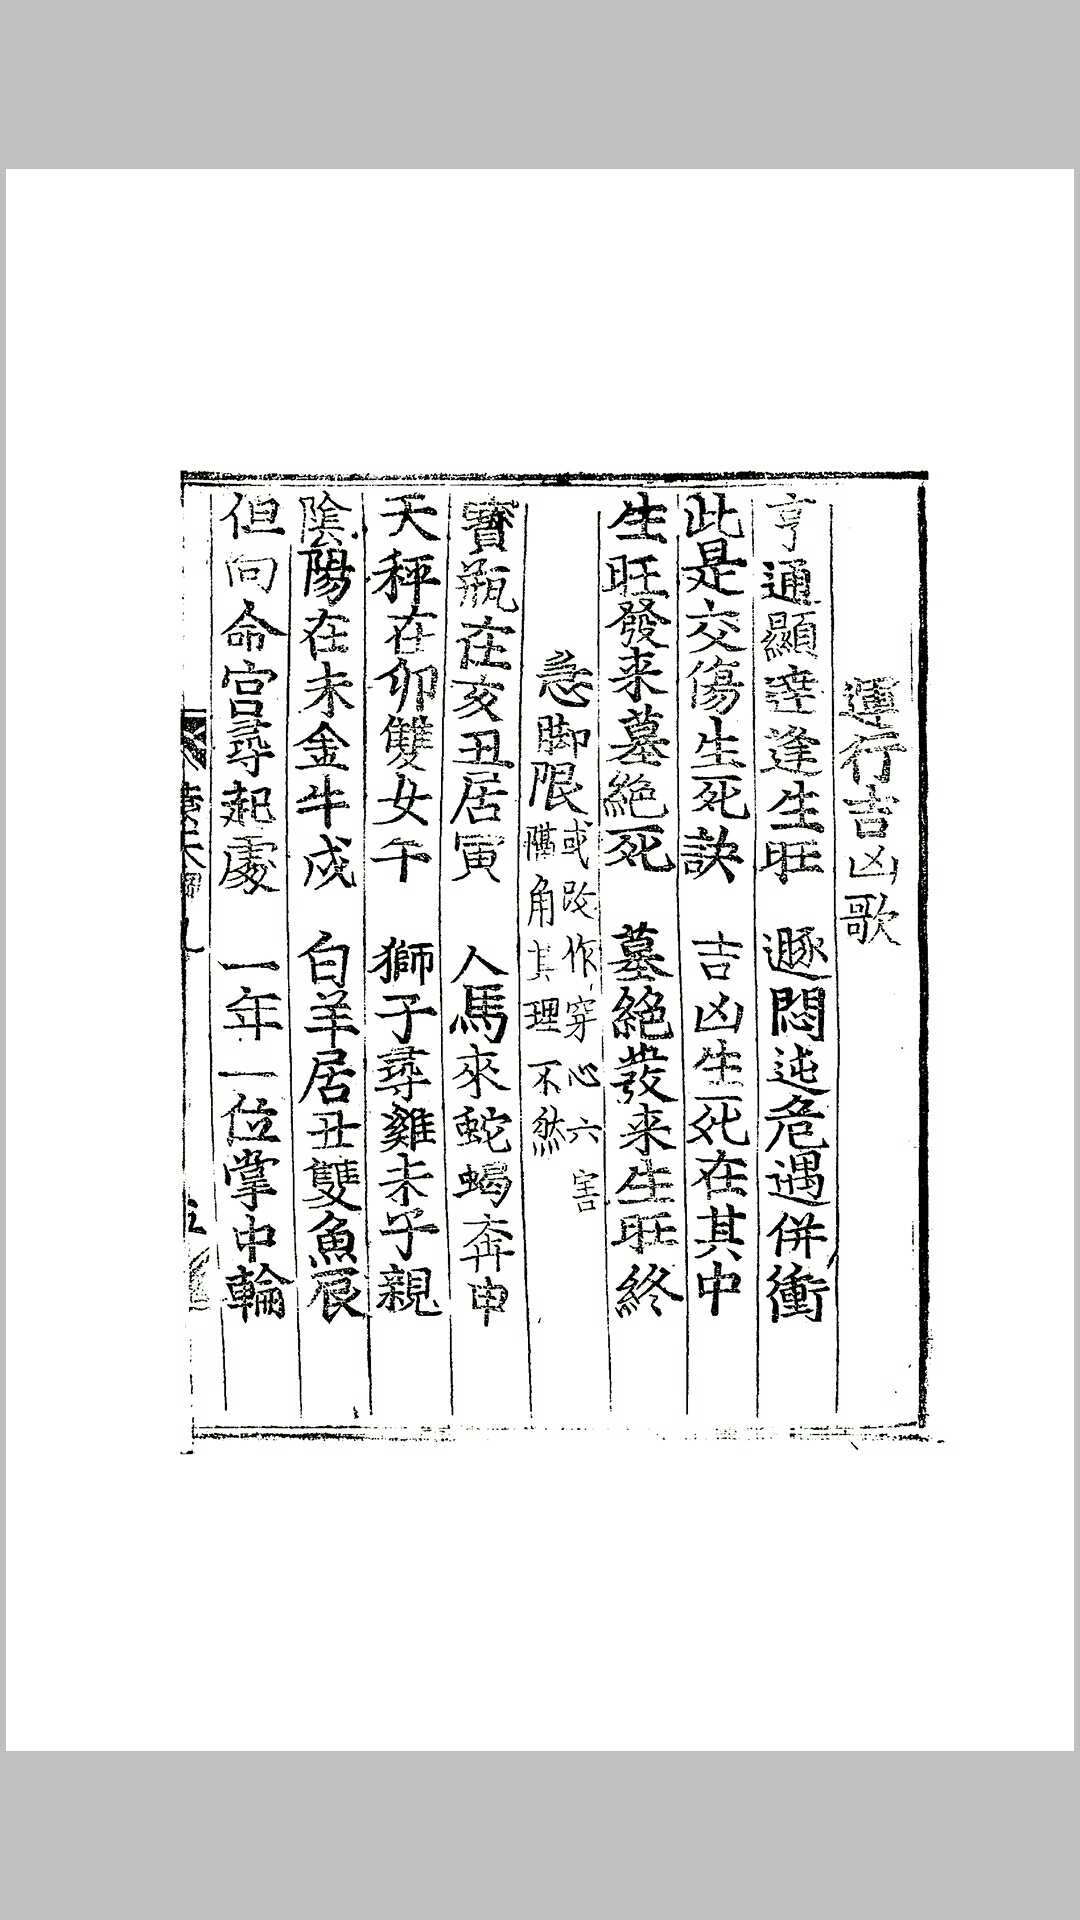 運行吉凶歌
亨通顯達逢生旺 遯悶迍危遇併衝
此是交傷生死訣 吉凶生死在其中
生旺發来墓絕死 墓絕發来生旺終
急脚限或改作穿心六害隔角其理不然
寶瓶在亥丑居寅 人馬來蛇蝎奔申
天秤在卯雙女午 獅子尋雞未子親
陰陽在未金牛戌 白羊居丑雙魚辰
但向命宫尋起處 一年一位掌中輪